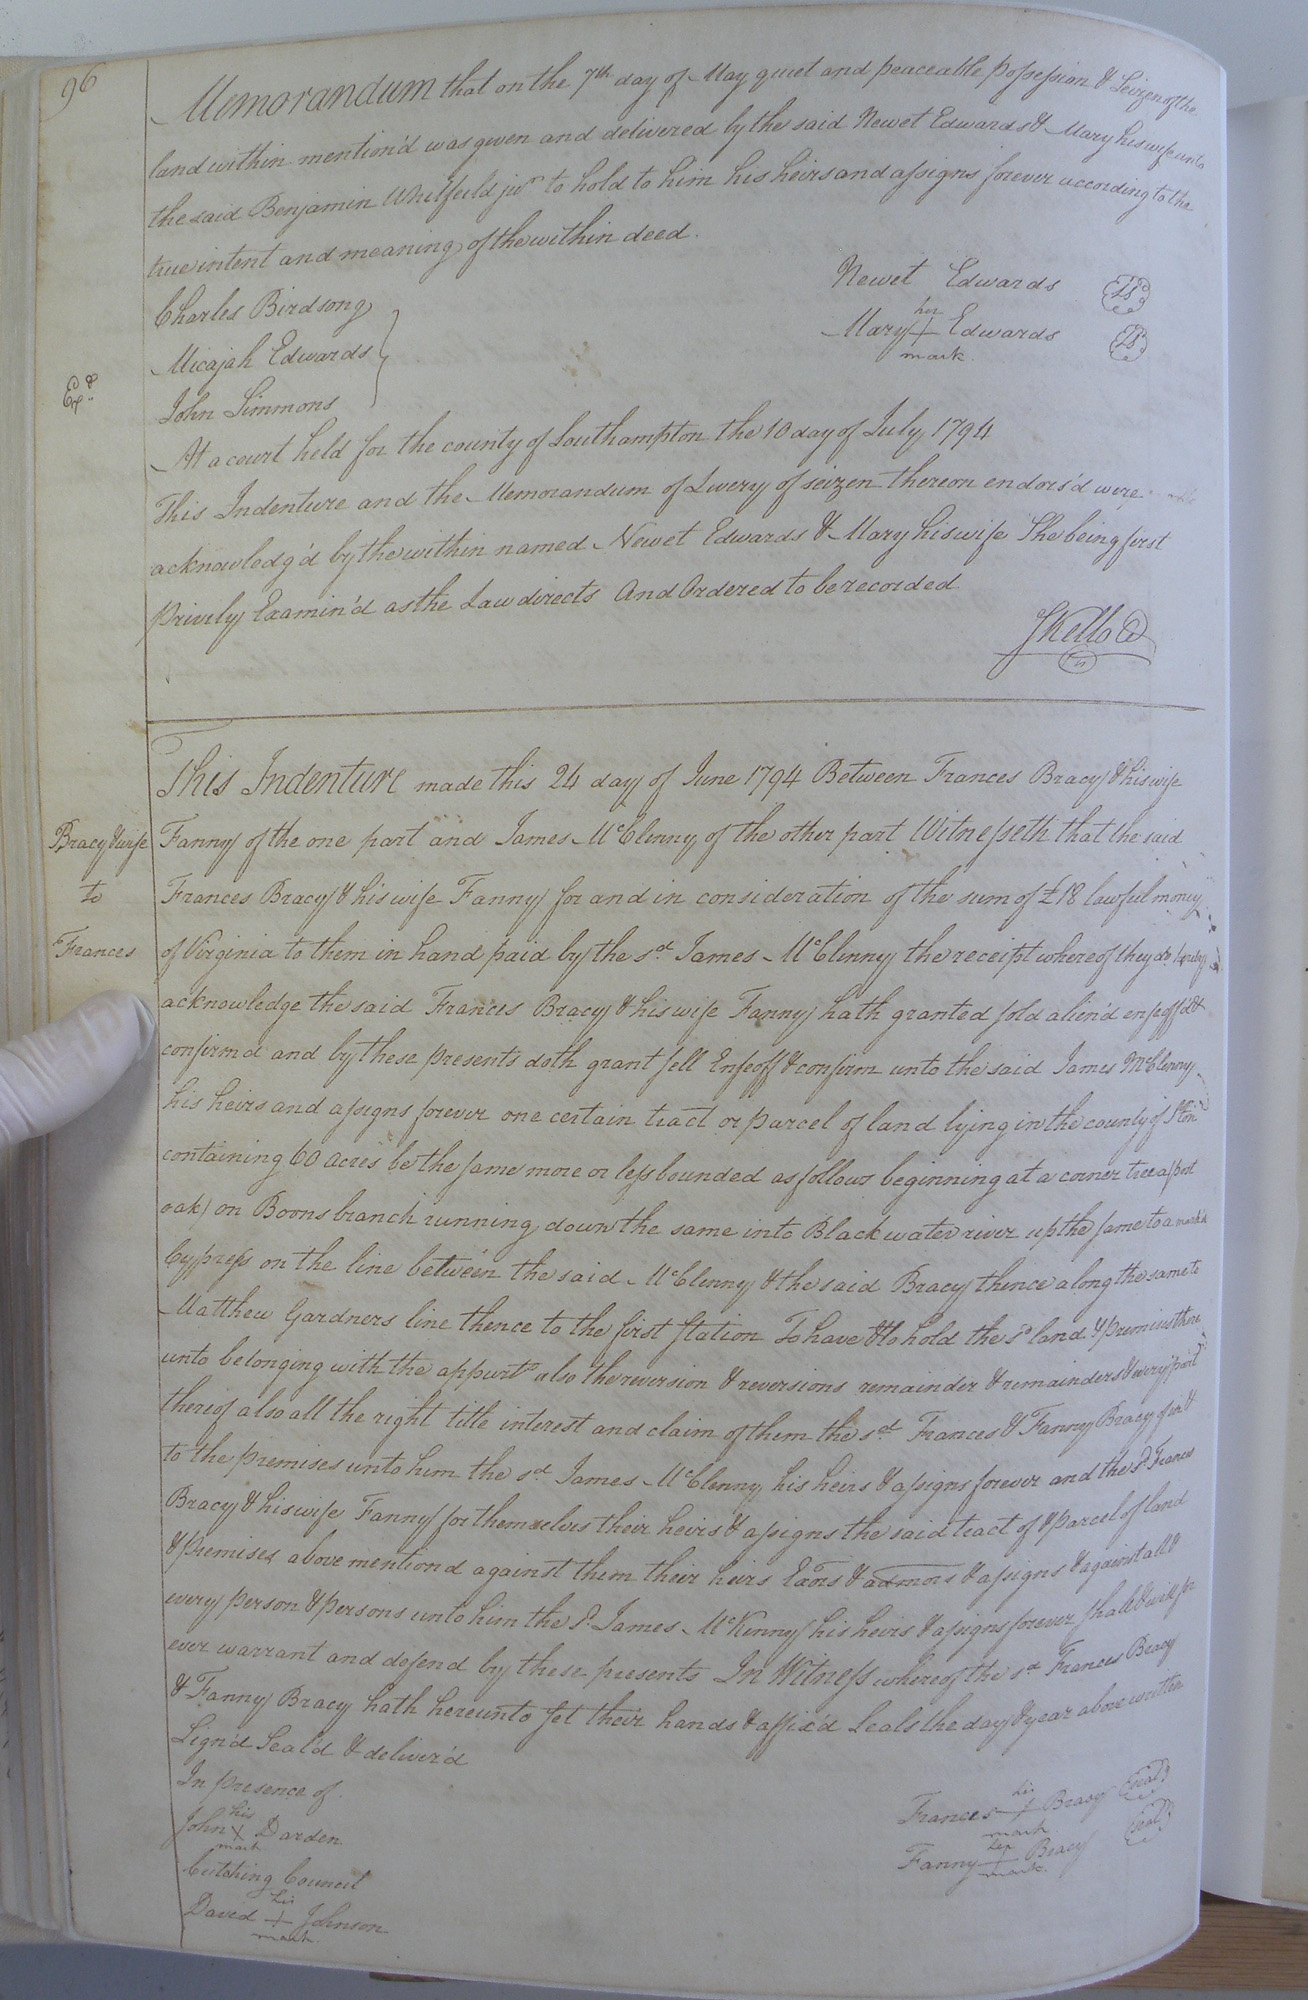 96
Memorandum that on the 7th day of May quiet and peaceable possession & Seizen of the
land within mention'd was given and delivered by the said Newet Edwards & Mary his wife unto
the said Benjamin Whitfeild jur to hold to him his heirs and assigns forever according to the
true intent and meaning of the within deed.
Newet Edwards LS
Charles Birdsong
her
Mary + Edwards LS
mark
Micajah Edwards
Exd
John Simmons
At a court held for the county of Southampton the 10 day of July 1794
This Indenture and the Memorandum of Livery of seizen thereon endors'd were
acknowledg'd by the within named Newet Edwards & Mary his wife She being first
Privily Examin'd as the Law directs And Ordered to be recorded
S Kello C
This Indenture made this 24 day of June 1794 Between Frances Bracy & his wife
Bracy & wife
Fanny of the one part and James McClenny of the other part Witnesseth that the said
to
Frances Bracy & his wife Fanny for and in consideration of the sum of £18 lawful money
Frances
of Virginia to them in hand paid by the sd James McClenny the receipt whereof they do hereby
acknowledge the said Frances Bracy & his wife Fanny hath granted sold alien'd enfeoff'd &
confirmd and by these presents doth grant sell Enfeoff & confirm unto the said James McClenny
his heirs and assigns forever one certain tract or parcel of land lying in the county of Ston
containing 60 acres be the same more or less bounded as follows beginning at a corner tree a post
oak on Boons branch running down the same into Black water river up the same to a mark'd
Cypress on the line between the said McClenny & the said Bracy thence along the same to
Matthew Gardners line thence to the first station To have & to hold the sd land & premises there
unto belonging with the appurts also the reversion & reversions remainder & remainders & every part
thereof also all the right title interest and claim of them the sd Frances & Fanny Bracy of in &
to the premises unto him the sd James McClenny his heirs & assigns forever and the sd Frances
Bracy & his wife Fanny for themselves their heirs & assigns the said tract of & parcel of land
& premises above mentiond against them their heirs Exors & admors & assigns & against all &
every person & persons unto him the sd James McKinny his heirs & assigns forever shall & will for
ever warrant and defend by these presents In Witness whereof the sd Frances Bracy
& Fanny Bracy hath hereunto set their hands & affix'd Seals the day & year above written
Sign'd Seal'd & deliver'd
In presence of
his
Frances + Bracy Seal
mark
his
John X Darden
mark
her
Fanny + Bracy Seal
mark
Cutching Council
his
David + Johnson
mark